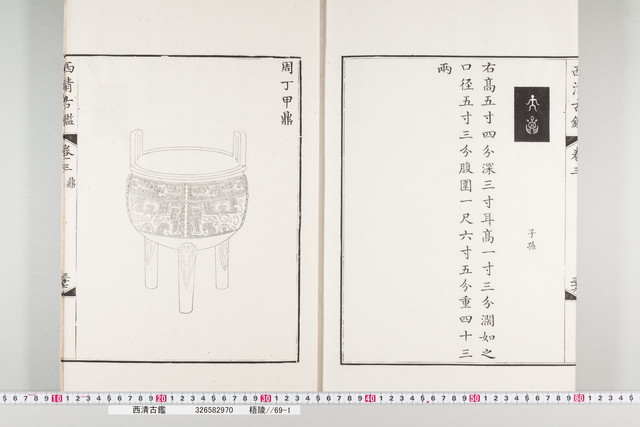 子孫
右高五寸四分深三寸耳高一寸三分濶如之
口徑五寸三分腹圍一尺六寸五分重四十三
兩
周丁甲鼎
西清古鑑
卷三
鼎
西清古鑑 326582970 梧陵//69-I